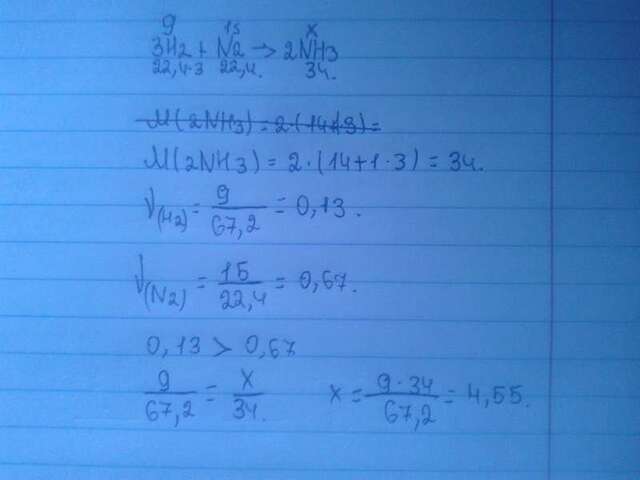 9 15 x
3H2 + N2 → 2NH3
22,4·3 22,4. 34.
M(2NH3) = 2·(14+3)=
M(2NH3) = 2·(14+1·3) = 34.
ν(H2) = 9/67,2 = 0,13.
ν(N2) = 15/22,4 = 0,67.
0,13 > 0,67
9/67,2 = x/34. x = 9·34/67,2 = 4,55.